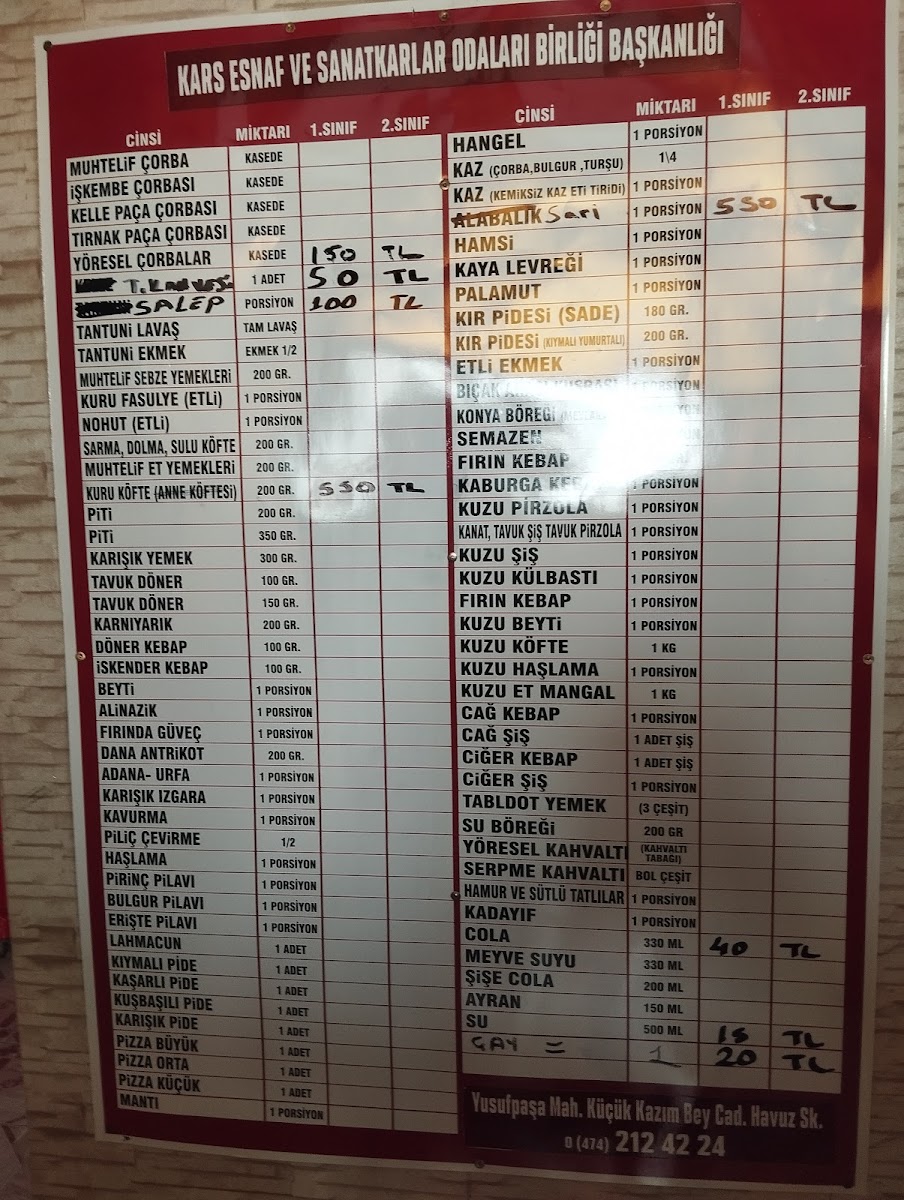 KARS ESNAF VE SANATKARLAR ODALARI BİRLİĞİ BAŞKANLIĞI
CİNSİ MİKTARI 1.SINIF 2.SINIF
MUHTELİF ÇORBA KASEDE
İŞKEMBE ÇORBASI KASEDE
KELLE PAÇA ÇORBASI KASEDE
TIRNAK PAÇA ÇORBASI KASEDE
YÖRESEL ÇORBALAR KASEDE 150 TL
T. KAHVESİ 1 ADET 50 TL
SALEP PORSİYON 100 TL
TANTUNİ LAVAŞ TAM LAVAŞ
TANTUNİ EKMEK EKMEK 1/2
MUHTELİF SEBZE YEMEKLERİ 200 GR.
KURU FASULYE (ETLİ) 1 PORSİYON
NOHUT (ETLİ) 1 PORSİYON
SARMA, DOLMA, SULU KÖFTE 200 GR.
MUHTELİF ET YEMEKLERİ 200 GR.
KURU KÖFTE (ANNE KÖFTESİ) 200 GR. 550 TL
PİTİ 200 GR.
PİTİ 350 GR.
KARIŞIK YEMEK 300 GR.
TAVUK DÖNER 100 GR.
TAVUK DÖNER 150 GR.
KARNIYARIK 200 GR.
DÖNER KEBAP 100 GR.
İSKENDER KEBAP 100 GR.
BEYTİ 1 PORSİYON
ALİNAZİK 1 PORSİYON
FIRINDA GÜVEÇ 1 PORSİYON
DANA ANTRİKOT 200 GR.
ADANA- URFA 1 PORSİYON
KARIŞIK IZGARA 1 PORSİYON
KAVURMA 1 PORSİYON
PİLİÇ ÇEVİRME 1/2
HAŞLAMA 1 PORSİYON
PİRİNÇ PİLAVI 1 PORSİYON
BULGUR PİLAVI 1 PORSİYON
ERİŞTE PİLAVI 1 PORSİYON
LAHMACUN 1 ADET
KIYMALI PİDE 1 ADET
KAŞARLI PİDE 1 ADET
KUŞBAŞILI PİDE 1 ADET
KARIŞIK PİDE 1 ADET
PİZZA BÜYÜK 1 ADET
PİZZA ORTA 1 ADET
PİZZA KÜÇÜK 1 ADET
MANTI 1 PORSİYON
CİNSİ MİKTARI 1.SINIF 2.SINIF
HANGEL 1 PORSİYON
KAZ (ÇORBA,BULGUR ,TURŞU) 1\4
KAZ (KEMİKSİZ KAZ ETİ TİRİDİ) 1 PORSİYON
ALABALIK Sari 1 PORSİYON 550 TL
HAMSİ 1 PORSİYON
KAYA LEVREĞİ 1 PORSİYON
PALAMUT 1 PORSİYON
KIR PİDESİ (SADE) 180 GR.
KIR PİDESİ (KIYMALI YUMURTALI) 200 GR.
ETLİ EKMEK 1 PORSİYON
BIÇAK PORSİYON
KONYA BÖREĞİ
SEMAZEN
FIRIN KEBAP
KABURGA 1 PORSİYON
KUZU PİRZOLA 1 PORSİYON
KANAT, TAVUK ŞİŞ TAVUK PİRZOLA 1 PORSİYON
KUZU ŞİŞ 1 PORSİYON
KUZU KÜLBASTI 1 PORSİYON
FIRIN KEBAP 1 PORSİYON
KUZU BEYTİ 1 PORSİYON
KUZU KÖFTE 1 KG
KUZU HAŞLAMA 1 PORSİYON
KUZU ET MANGAL 1 KG
CAĞ KEBAP 1 PORSİYON
CAĞ ŞİŞ 1 ADET ŞİŞ
CİĞER KEBAP 1 ADET ŞİŞ
CİĞER ŞİŞ 1 PORSİYON
TABLDOT YEMEK (3 ÇEŞİT)
SU BÖREĞİ 200 GR
YÖRESEL KAHVALTI (KAHVALTI TABAĞI)
SERPME KAHVALTI BOL ÇEŞİT
HAMUR VE SÜTLÜ TATLILAR 1 PORSİYON
KADAYIF 1 PORSİYON
COLA 330 ML 40 TL
MEYVE SUYU 330 ML
ŞİŞE COLA 200 ML
AYRAN 150 ML
SU 500 ML 15 TL
ÇAY = 1 20 TL
Yusufpaşa Mah. Küçük Kazım Bey Cad. Havuz Sk.
0 (474) 212 42 24